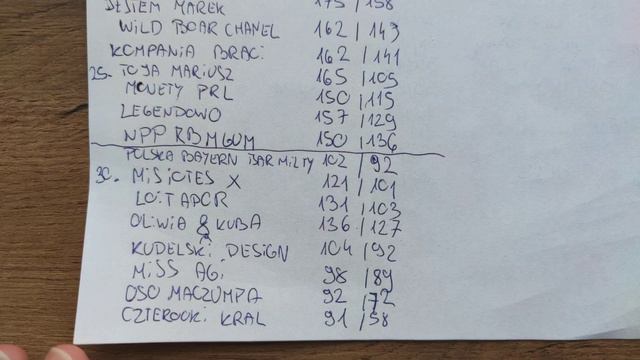 JESTEM MAREK 175 / 158
WILD BOAR CHANEL 162 / 143
KOMPANIA BRACI 162 / 141
25. TOJA MARIUSZ 165 / 105
MONETY PRL 150 / 115
LEGENDOWO 157 / 129
NPP RBMGUM 150 / 136
POLSKA BAYERN BAR MILTY 102 / 92
30. MISIOTES X 121 / 101
LOITADOR 131 / 103
OLIWIA & KUBA 136 / 127
KUDELSKI DESIGN 104 / 92
MISS AGI 98 / 89
OSO MACZUMPA 92 / 72
CZTEROOKI KRAL 91 / 58